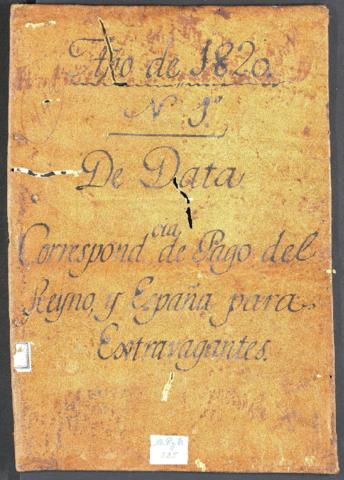 Año de 1820.
N 1º
De Data
Correspond cia de Pago del
Reyno, y España para
Extravagantes.